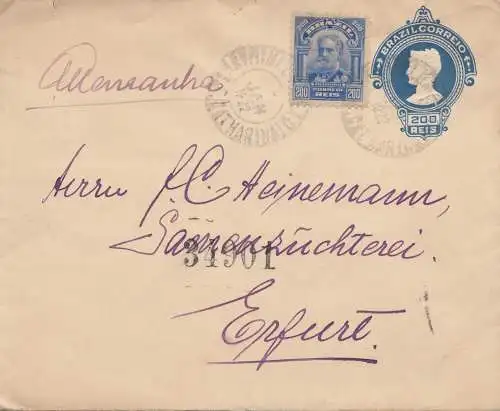 Allemanha
BRAZIL
200 200
REIS
BRAZIL CORREIO
200
REIS
Herrn F. C. Heinemann,
Samenzüchterei.
34901
Erfurt.